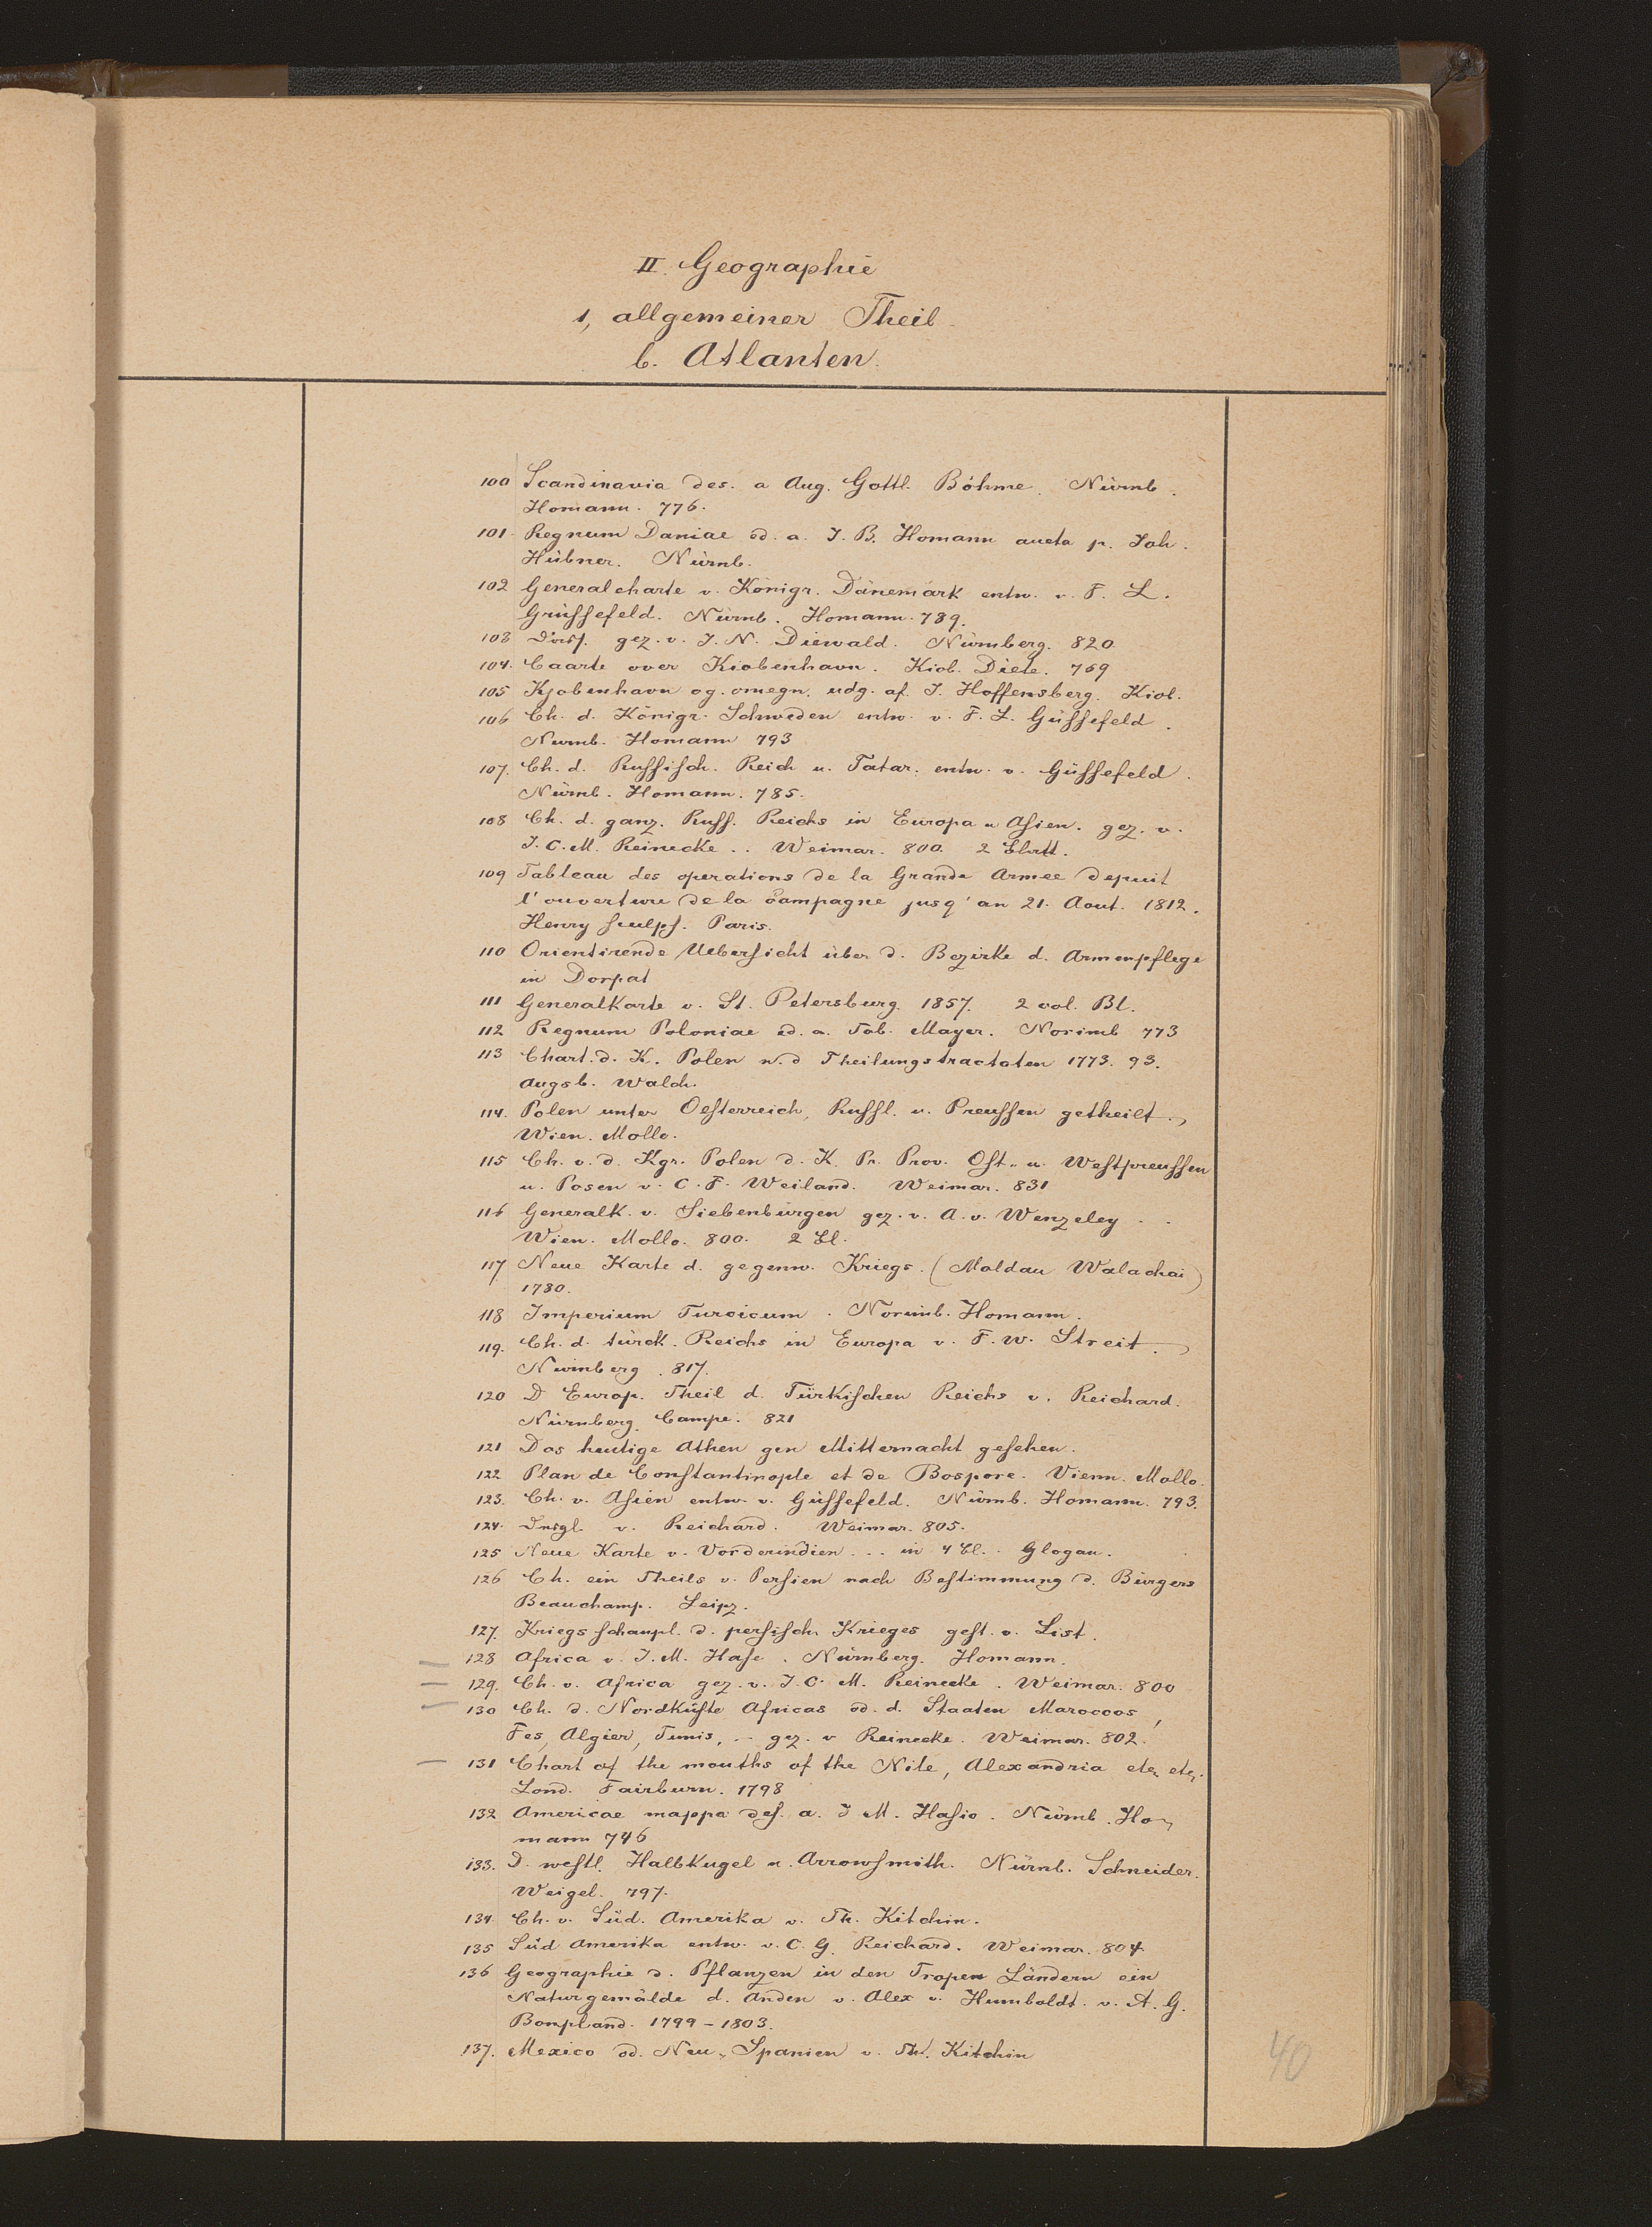 II. Geographie
1, allgemeiner Theil.
b. Atlanten.
100 Scandinavia des. a Aug. Gottl. Böhme. Nürnb.
Homann. 776.
101. Regnum Daniae ed. a. J. B. Homann aucta p. Joh.
Hübner. Nürnb.
102 Generalcharte v. Königr. Dänemark entw. v. F. L.
Grüssefeld. Nürnb. Homann. 789.
103 gez. v. J. N. Diewald. Nürnberg. 820
104. Caarte over Kiobenhavn. Kiob. 769
105 Kjobenhavn og. omegn. udg. af. J. Hoffensberg. Kiob.
106 Ch. d. Königr. Schweden entw. v. F. L. Güssefeld.
Nürnb. Homann 793
107. Ch. d. Russisch. Reich u. Tatar. entw. v. Güssefeld.
Nürnb. Homann. 785.
108 Ch. d. ganz. Russ. Reichs in Europa u Asien. gez. v.
J. C. M. Reinecke .. Weimar. 800. 2 Blatt.
109 Tableau des operations de la Grande Armee depuit
l'ouverture de la Campagne jusq'an 21. Aout. 1812.
Henry sculps. Paris.
110 Orientirende Uebersicht über d. Bezirke d. Armenpflege
in Dorpat
111 Generalkarte v. St. Petersburg. 1857. 2 col. Bl.
112 Regnum Poloniae ed. a. Tob. Mayer. Norimb 773
113 Chart. d. K. Polen n. d Theilungstractaten 1773. 93.
Augsb. Walch.
114. Polen unter Oesterreich, Russl. u. Preussen getheilt.,
Wien. Mollo.
115 Ch. v. d. Kgr. Polen d. K. Pr. Prov. Ost- u. Westpreussen
u. Posen v. C. F. Weiland. Weimar. 831
116 Generalk. v. Siebenbürgen gez. v. A. v. Wenzeley . .
Wien. Mollo. 800. 2 Bl.
117 Neue Karte d. gegenw. Kriegs. (Moldau Walachai)
1780.
118 Imperium Turcicum. Norimb. Homann.
119. Ch. d. türck. Reichs in Europa v. F. W. Streit.
Nürnberg. 817.
120 D Europ. Theil d. Türkischen Reichs v. Reichard.
Nürnberg. Campe. 821
121 Das heutige Athen gen Mitternacht gesehen.
122 Plan de Constantinople et de Bospore. Vienn. Mollo.
123. Ch. v. Asien entw. v. Güssefeld. Nürnb. Homann. 793.
124. Dsgl. v. Reichard. Weimar. 805.
125 Neue Karte v. Vorderindien ... in 4 Bl. Glogau.
126 Ch. ein Theils v. Persien nach Bestimmung d. Bürgers
Beauchamp. Leipz.
127. Kriegsschaupl. d. persisch. Krieges gest. v. List.
128 Africa v. J. M. Hase. Nürnberg. Homann.
129. Ch. v. Africa gez. v. J. C. M. Reinecke. Weimar. 800
130 Ch. d. Nordküste Africas od. d. Staaten Maroccos,
Fes, Algier, Tunis, .. gez. v Reinecke. Weimar. 802.
131 Chart of the mouths of the Nile, Alexandria etc. etc.
Lond. Fairburn. 1798
132 Americae mappa des. a. J M. Hasio. Nürnb. Ho-
mann 746
133. D. westl. Halbkugel n. Arrowsmith. Nürnb. Schneider.
Weigel. 797.
134. Ch. v. Süd. Amerika v. Th. Kitchin.
135 Süd Amerika entw. v. C. G. Reichard. Weimar. 804
136 Geographie d. Pflanzen in den Tropen Ländern ein
Naturgemälde d. Anden v. Alex v. Humboldt. v. A. G.
Bonpland. 1799 - 1803.
137. Mexico od. Neu-Spanien v. Th. Kitchin
40